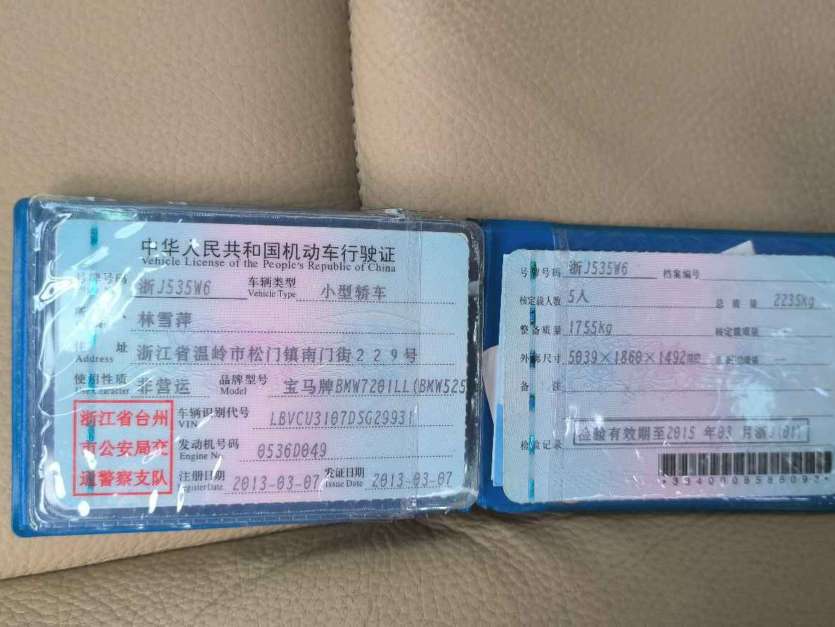 中华人民共和国机动车行驶证
Vehicle License of the People's Republic of China
号牌号码 浙J535W6 车辆类型 小型轿车
Vehicle Type
林雪萍
住 址 浙江省温岭市松门镇南门街229号
Address
使用性质 非营运 品牌型号 宝马牌BMW7201LL(BMW525
Use Character Model
浙江省台州
市公安局交
通警察支队
车辆识别代号 LBVCU3107DSG29931
VIN
发动机号码 0536D049
Engine No.
注册日期 2013-03-07 发证日期 2013-03-07
Register Date Issue Date
号牌号码 浙J535W6 档案编号
核定载人数 5人 总质量 2235kg
整备质量 1755kg 核定载质量 —
外廓尺寸 5039×1860×1492 —
备 注
检验记录 检验有效期至2015年03月浙J(01)